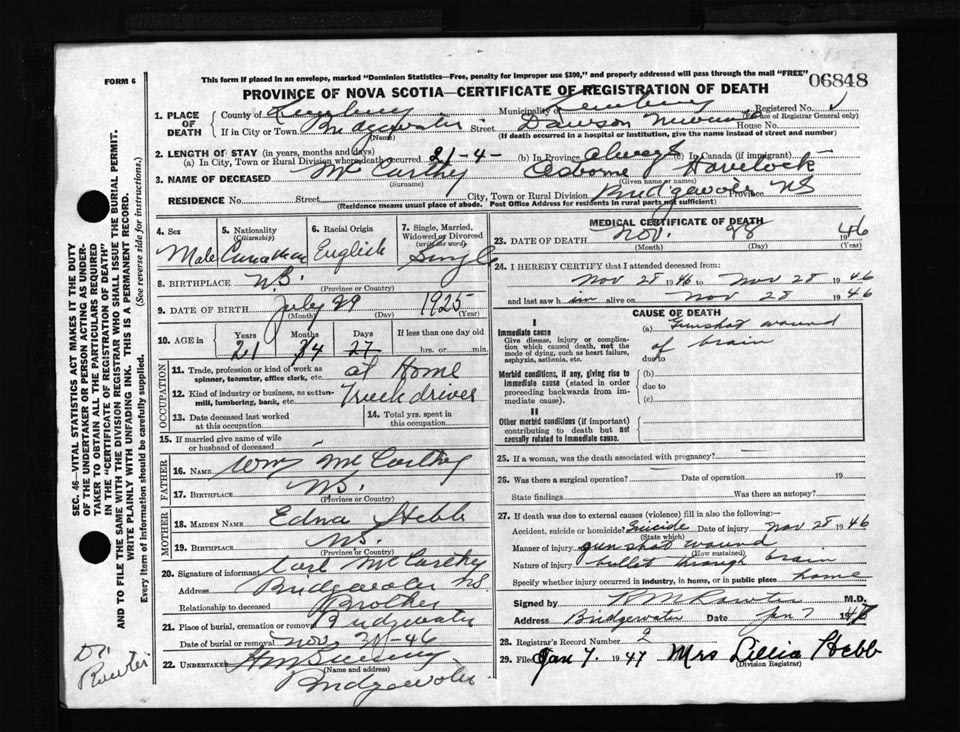 FORM 6
This form if placed in an envelope, marked "Dominion Statistics—Free, penalty for improper use $300," and properly addressed will pass through the mail "FREE"
06848
PROVINCE OF NOVA SCOTIA—CERTIFICATE OF REGISTRATION OF DEATH
1. PLACE OF DEATH
County of Lunenburg Municipality of Lunenburg Registered No.
(For use of Registrar General only)
If in City or Town Bridgewater Street Dawson Memorial House No.
(Name)
(If death occurred in a hospital or institution, give the name instead of street and number)
2. LENGTH OF STAY (in years, months and days)
(a) In City, Town or Rural Division where death occurred 21-4- (b) In Province always (c) In Canada (if immigrant)
3. NAME OF DECEASED McCarthy Osborne Havelock
(Surname) (Given name or names)
RESIDENCE No. Street City, Town or Rural Division Bridgewater Province NS
(Residence means usual place of abode. Post Office Address for residents in rural parts not sufficient)
4. Sex Male
5. Nationality (Citizenship) Canadian
6. Racial Origin English
7. Single, Married, Widowed or Divorced (write the word) Single
8. BIRTHPLACE N.S.
(Province or Country)
9. DATE OF BIRTH July 29 1925
(Month) (Day) (Year)
10. AGE in Years Months Days If less than one day old
21 4 27 hrs. or min.
OCCUPATION
11. Trade, profession or kind of work as spinner, teamster, office clerk, etc. at Home
12. Kind of industry or business, as cotton-mill, lumbering, bank, etc. Truck driver
13. Date deceased last worked at this occupation
14. Total yrs. spent in this occupation
15. If married give name of wife or husband of deceased
FATHER
16. NAME Wm McCarthy
17. BIRTHPLACE N.S.
(Province or Country)
MOTHER
18. MAIDEN NAME Edna Hebb
19. BIRTHPLACE N.S.
(Province or Country)
20. Signature of informant Carl McCarthy
Address Bridgewater NS
Relationship to deceased Brother
21. Place of burial, cremation or removal Bridgewater
Date of burial or removal Nov 30-46
22. UNDERTAKER
(Name and address)
Bridgewater
MEDICAL CERTIFICATE OF DEATH
23. DATE OF DEATH Nov. 28 1946
(Month) (Day) (Year)
24. I HEREBY CERTIFY that I attended deceased from:
Nov 28 1946 to Nov 28 1946
and last saw him alive on Nov 28 1946
CAUSE OF DEATH
I
Immediate cause
Give disease, injury or complication which caused death, not the mode of dying, such as heart failure, asphyxia, asthenia, etc.
(a) Gunshot wound
of brain
due to
Morbid conditions, if any, giving rise to immediate cause (stated in order proceeding backwards from immediate cause).
(b)
due to
(c)
II
Other morbid conditions (if important) contributing to death but not causally related to immediate cause.
25. If a woman, was the death associated with pregnancy?
26. Was there a surgical operation? Date of operation 19
State findings Was there an autopsy?
27. If death was due to external causes (violence) fill in also the following:
Accident, suicide or homicide? Suicide Date of injury Nov 28 1946
(State which)
Manner of injury gun shot wound
(How sustained)
Nature of injury bullet through brain
Specify whether injury occurred in industry, in home, or in public place home
Signed by M.D.
Address Bridgewater Date Jan 7 1947
28. Registrar's Record Number 2
29. Filed Jan 7. 1947 Mrs Lillia Hebb
(Division Registrar)
SEC. 46—VITAL STATISTICS ACT MAKES IT THE DUTY
OF THE UNDERTAKER OR PERSON ACTING AS UNDER-
TAKER TO OBTAIN ALL THE PARTICULARS REQUIRED
IN THE "CERTIFICATE OF REGISTRATION OF DEATH"
AND TO FILE THE SAME WITH THE DIVISION REGISTRAR WHO SHALL ISSUE THE BURIAL PERMIT.
WRITE PLAINLY WITH UNFADING INK. THIS IS A PERMANENT RECORD.
Every item of information should be carefully supplied. (See reverse side for instructions.)
Dr